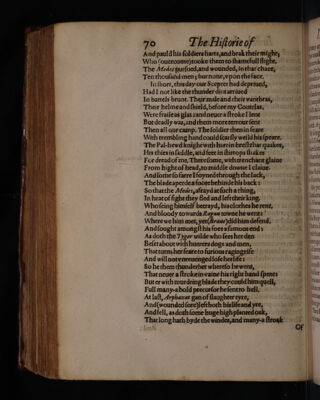 70 The Historie of
And paul'd his soldiers harts, and brak their might,
Who (ouercome) tooke them to shamefull flight.
The Medes pursued, and wounded, in that chace,
Ten thousand men; but none, vpon the face.
In short, this day our Scepter had depriued,
Had I not like the thunder dint arriued
In battels brunt. Their male and their vantbras,
Their helme and shield, before my Coutelas,
Were fraile as glas: and neuer a stroke I lent
But deadly was, and them more terrour sent
Then all our camp. The soldier then in feare
With trembling hand could scarsly weild his speare,
The Palhew'd knight with hurt in brest that quakes,
His thies in saddle, and feet in stirrops shakes
For dread of me. There some, with trenchant glaiue
From hight of head, to middle downe I claiue.
And some so farre I foyned through the Iack,
The blade aperd a foote behinde his back:
So that the Medes, afrayd at such a thing,
In heat of fight they fled and left their king.
Who seing himself betrayd, his clothes he rent,
And bloody towards Ragau towne he went:
Where we him met, yet (brauer) did him defend,
And sought amongst his foes a famous end:
As doth the Tyger wilde who sees her den
Beset about with hunters dogs and men,
That turns her feare to furious raging rife
And will not vnreuenged lose her life:
So he them thundered wheresoe he went,
That neuer a stroke in vaine his right hand spent:
But er with murdring blade they could him quell,
Full many a bold percursor he sent to hell.
At last, Arphaxat gan of slaughter tyre,
And (wounded sore) left both his life and yre,
And fell, as doth some huge high planted ouk,
That long hath byde the windes, and many a stroak
Of